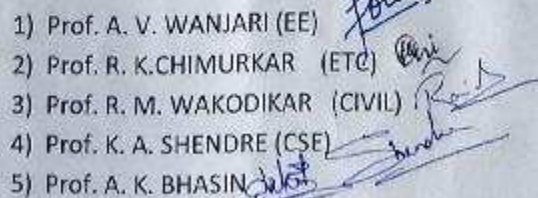 1) Prof. A. V. WANJARI (EE)
2) Prof. R. K.CHIMURKAR (ETC)
3) Prof. R. M. WAKODIKAR (CIVIL)
4) Prof. K. A. SHENDRE (CSE)
5) Prof. A. K. BHASIN